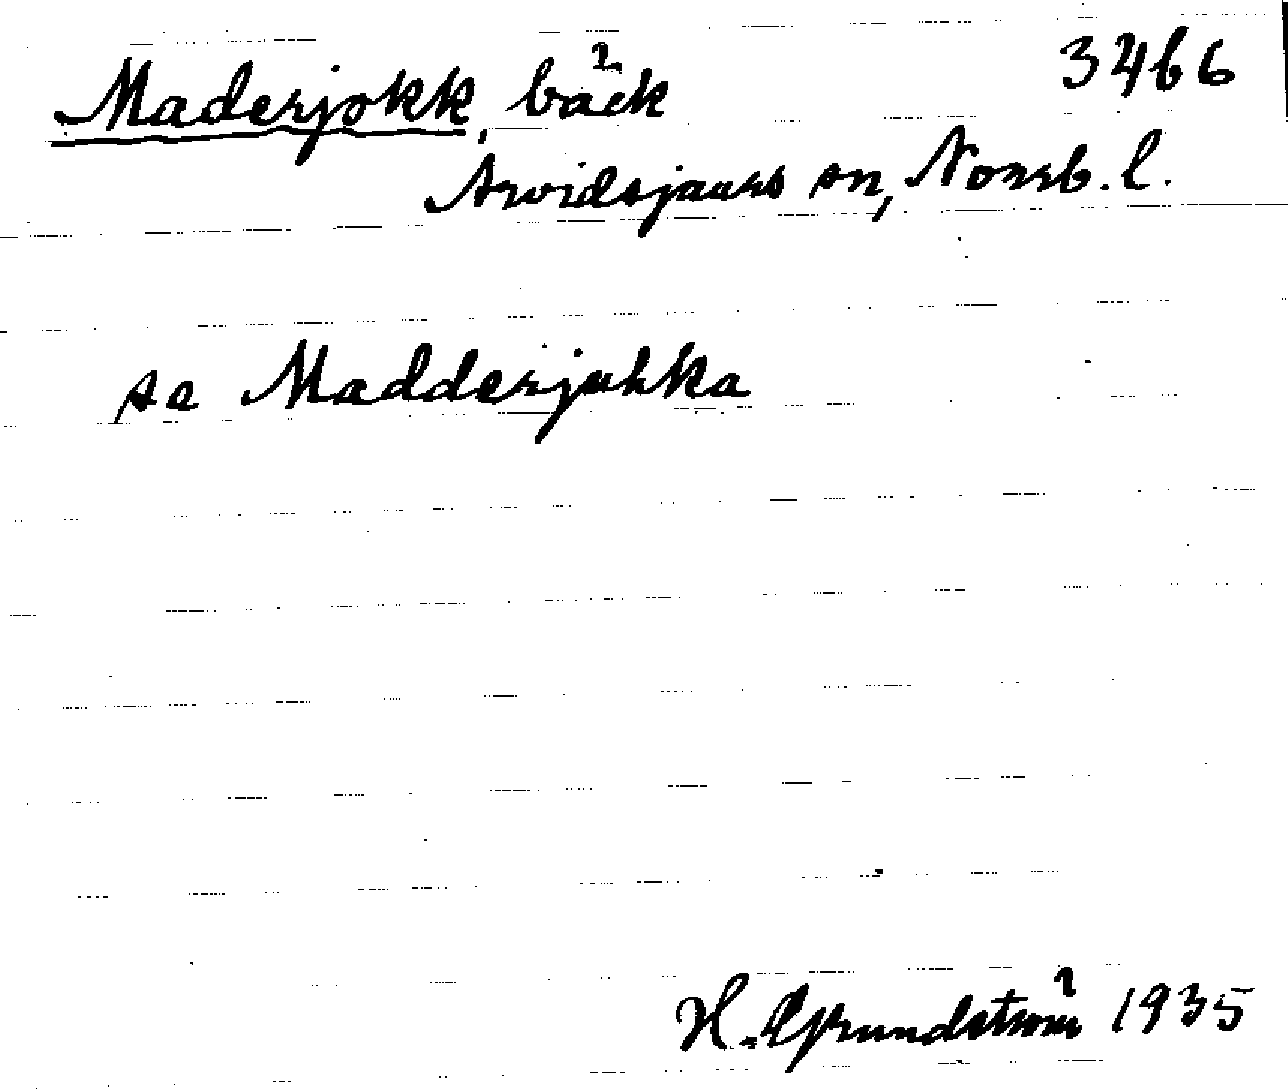 Maderjokk, bäck 3466
Arvidsjaurs sn, Norrb. l.
se Madderjuhka
H. Grundström 1935